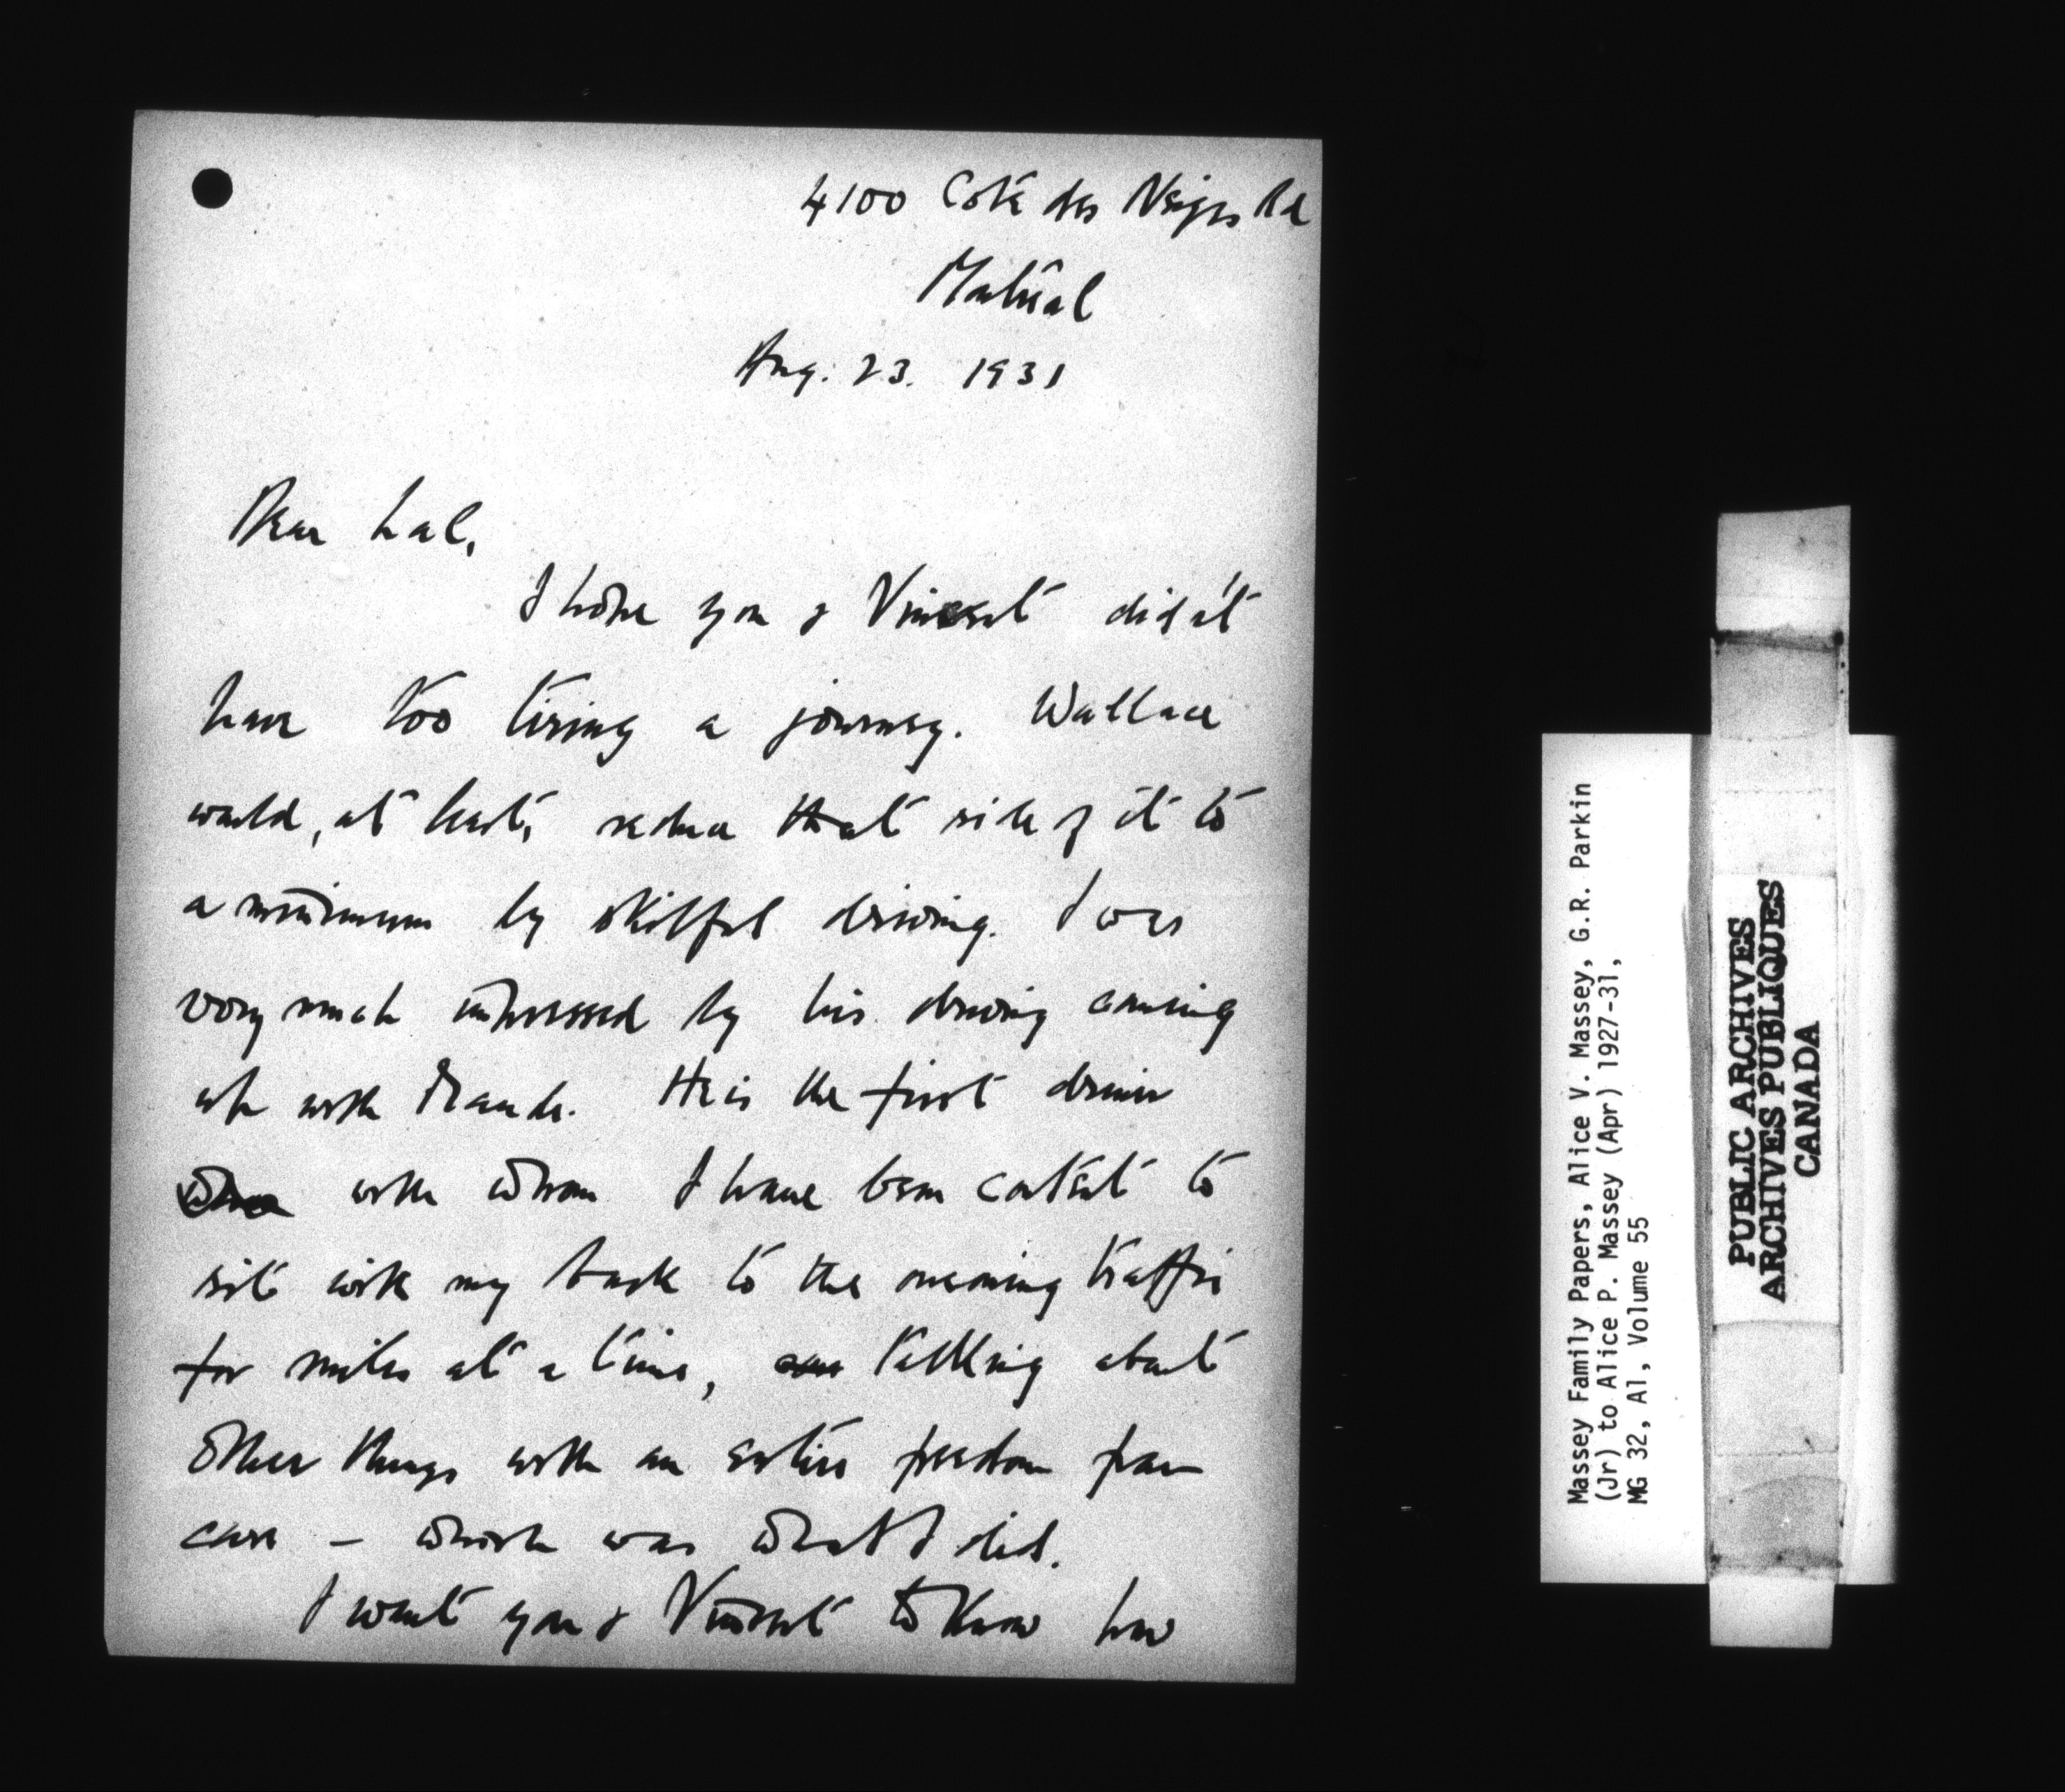 4100 Coté des Neiges Rd
Montreal
Aug. 23. 1931
Dear Lal,
I hope you & Vincent didn't
have too tiring a journey. Wallace
would, at least, reduce that side of it to
a minimum by skilful driving. I was
very much impressed by his driving coming
up with Maude. He is the first driver
with whom I have been content to
sit with my back to the oncoming traffic
for miles at a time, talking about
other things with an entire freedom from
care – which was what I did.
I want you & Vincent to know how
Massey Family Papers, Alice V. Massey, G.R. Parkin
(Jr) to Alice P. Massey (Apr) 1927-31,
MG 32, A1, Volume 55
PUBLIC ARCHIVES
ARCHIVES PUBLIQUES
CANADA